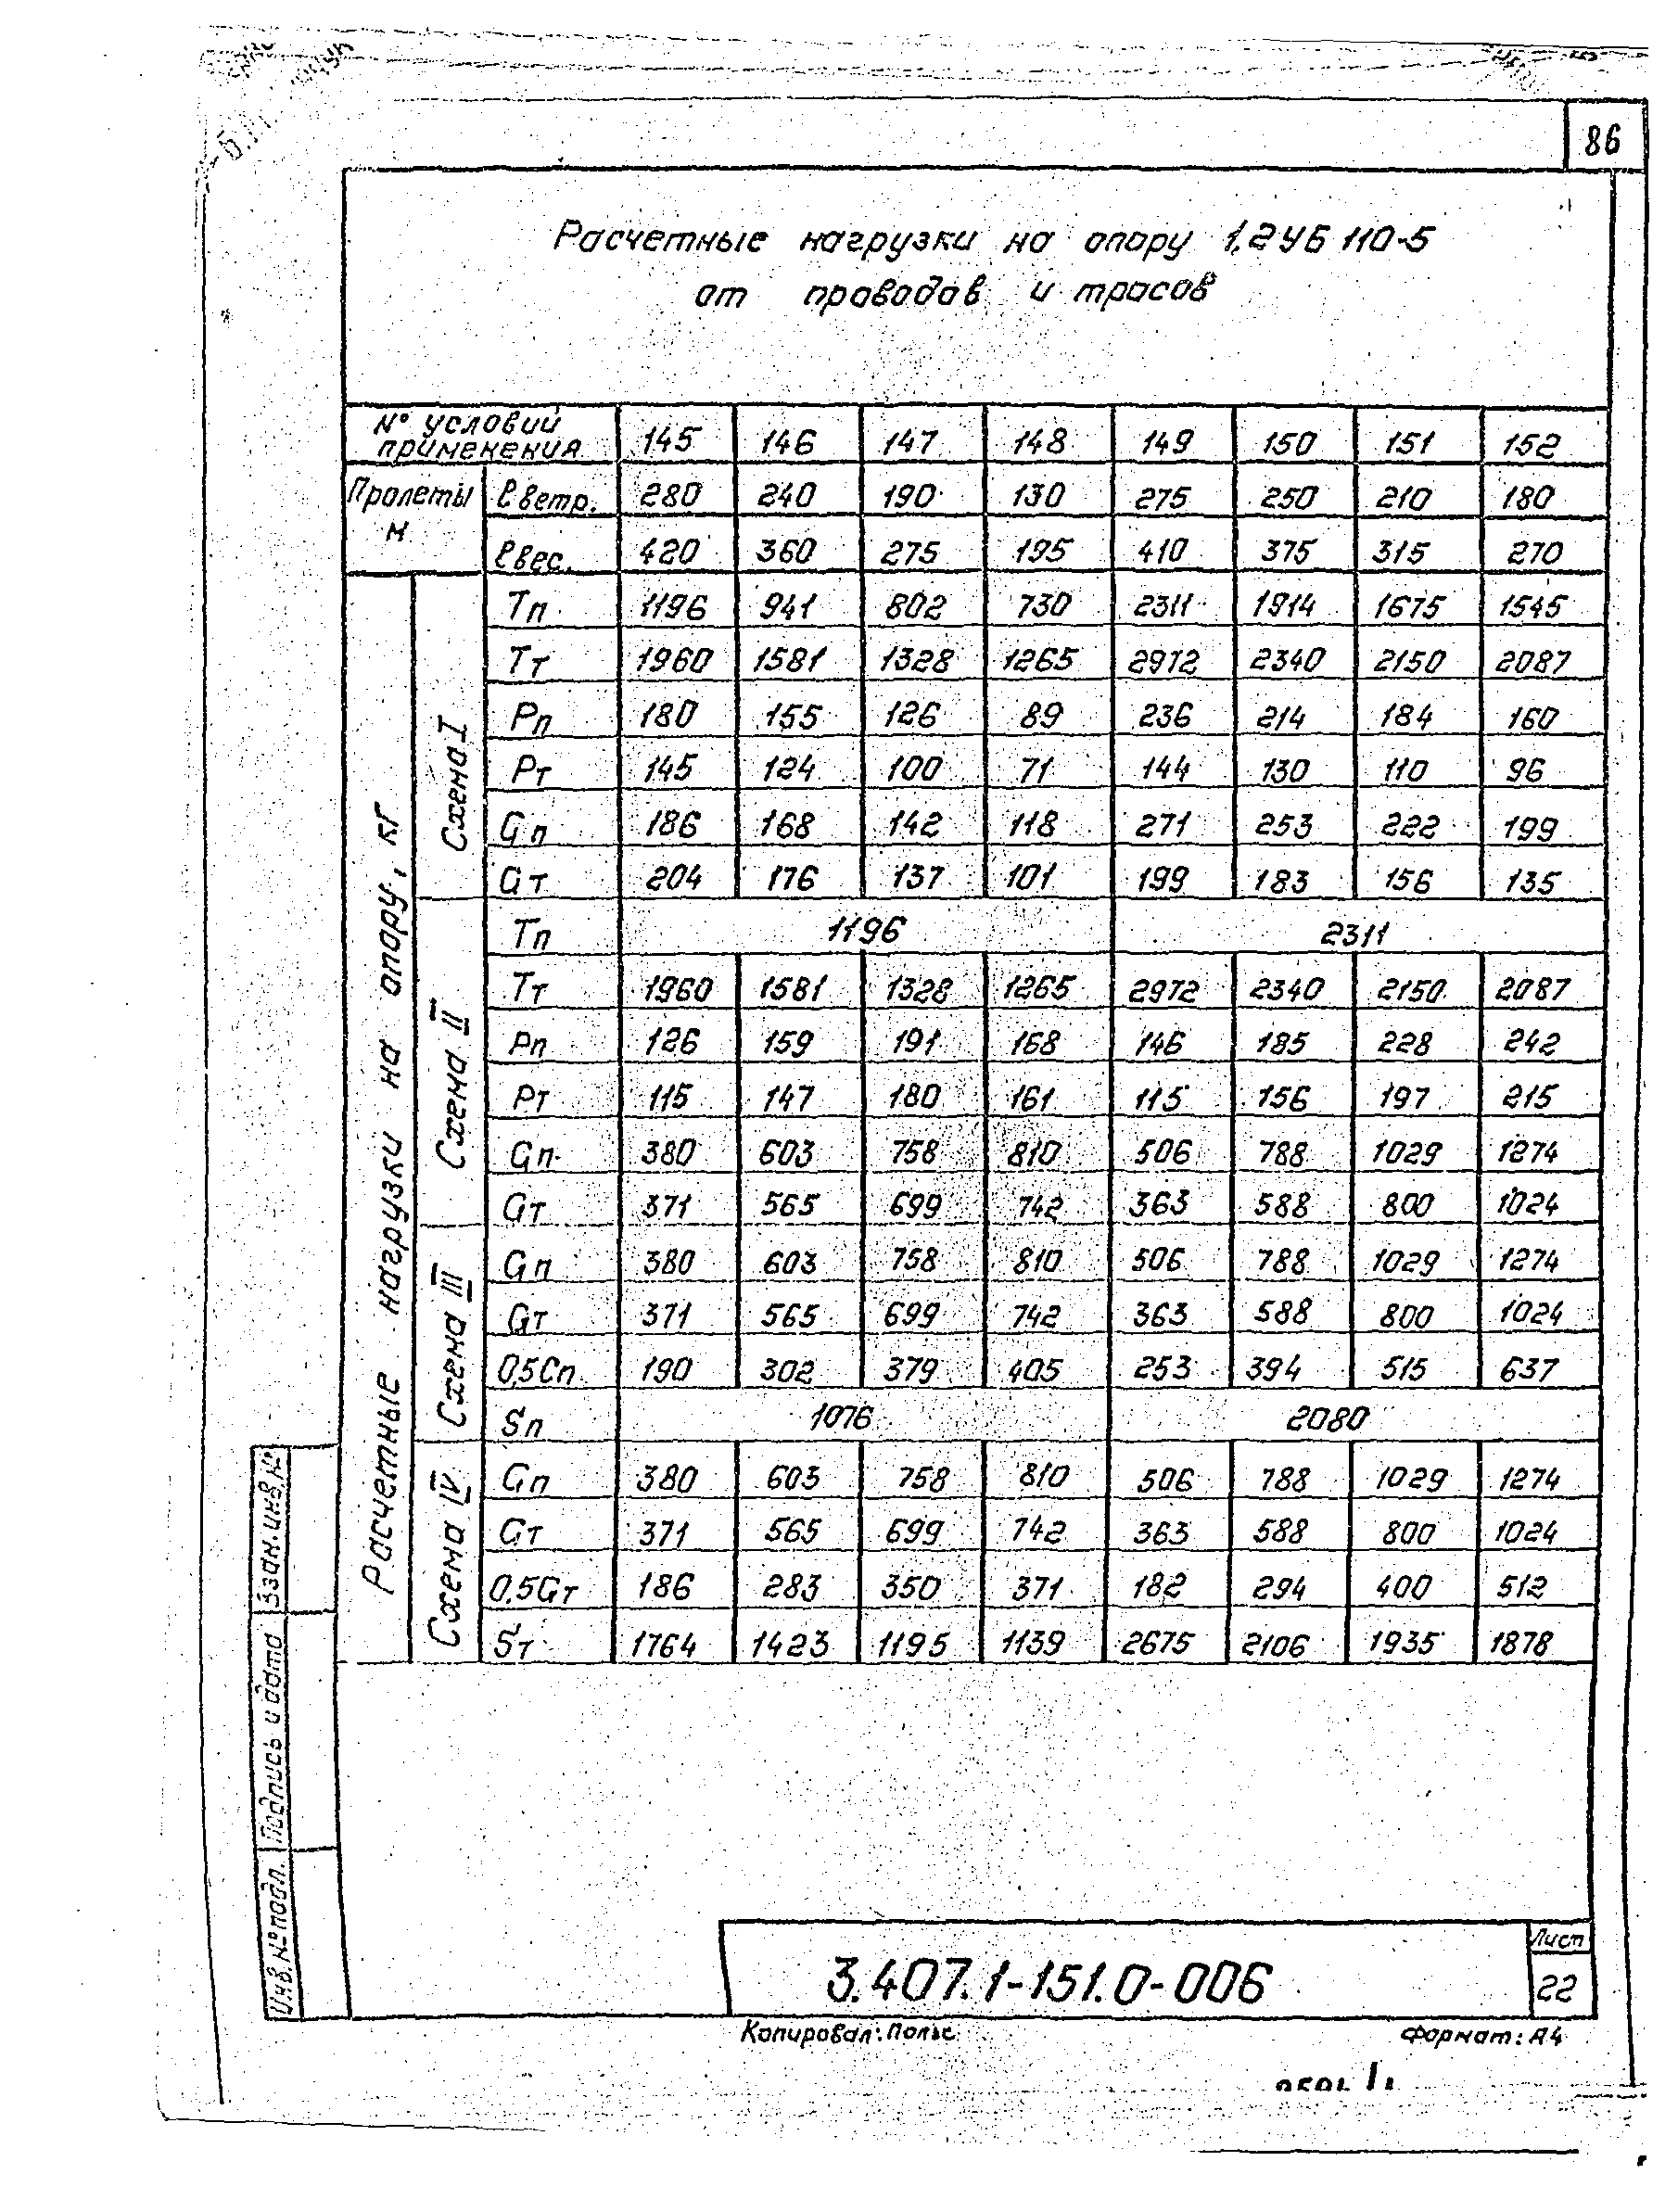 86
Расчетные нагрузки на опору 1,2УБ 110-5
от проводов и тросов
№ условий применения 145 146 147 148 149 150 151 152
Пролеты м
ℓ ветр. 280 240 190 130 275 250 210 180
ℓ вес. 420 360 275 195 410 375 315 270
Расчетные нагрузки на опору, кг
Схема I
Тп 1196 941 802 730 2311 1914 1675 1545
Тт 1960 1581 1328 1265 2972 2340 2150 2087
Рп 180 155 126 89 236 214 184 160
Рт 145 124 100 71 144 130 110 96
Gп 186 168 142 118 271 253 222 199
Gт 204 176 137 101 199 183 156 135
Схема II
Тп 1196 2311
Тт 1960 1581 1328 1265 2972 2340 2150 2087
Рп 126 159 191 168 146 185 228 242
Рт 115 147 180 161 115 156 197 215
Gп 380 603 758 810 506 788 1029 1274
Gт 371 565 699 742 363 588 800 1024
Схема III
Gп 380 603 758 810 506 788 1029 1274
Gт 371 565 699 742 363 588 800 1024
0,5Gп 190 302 379 405 253 394 515 637
Sп 1076 2080
Схема IV
Gп 380 603 758 810 506 788 1029 1274
Gт 371 565 699 742 363 588 800 1024
0,5Gт 186 283 350 371 182 294 400 512
Sт 1764 1423 1195 1139 2675 2106 1935 1878
Взам. инв. №
Подпись и дата
Инв. № подл.
3.407.1-151.0-006
Лист
22
Копировал: Польс
Формат: А4